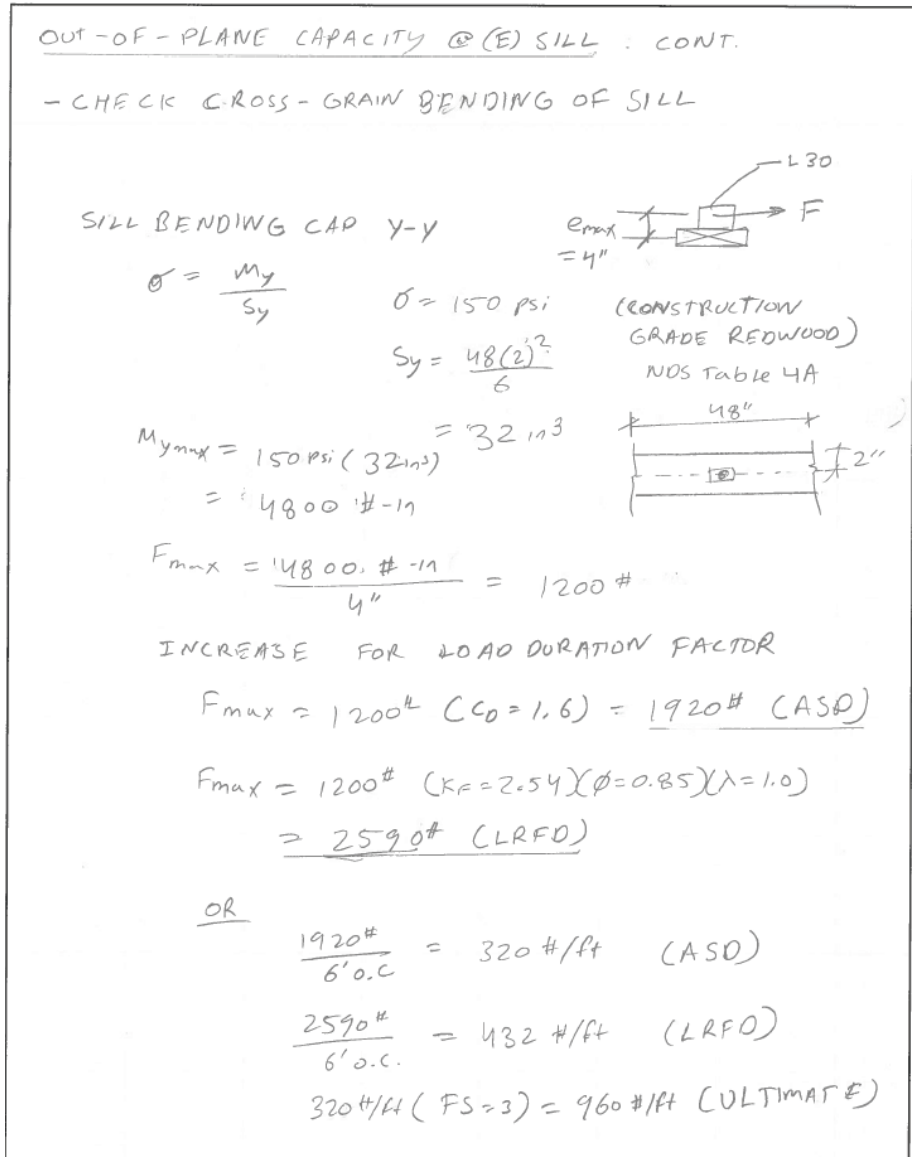 OUT-OF-PLANE CAPACITY @ (E) SILL : CONT.
- CHECK CROSS-GRAIN BENDING OF SILL
L30
F
emax = 4"
SILL BENDING CAP Y-Y
σ = My / Sy
σ = 150 psi
(CONSTRUCTION
GRADE REDWOOD)
NDS Table 4A
Sy = 48(2)² / 6
= 32 in3
48"
2"
Mymax = 150 psi (32in3)
= 4800 #-in
Fmax = 4800 #-in / 4" = 1200 #
INCREASE FOR LOAD DURATION FACTOR
Fmax = 1200# (CD = 1.6) = 1920# (ASD)
Fmax = 1200# (KF = 2.54)(φ=0.85)(λ=1.0)
= 2590# (LRFD)
OR
1920# / 6' o.c = 320 #/ft (ASD)
2590# / 6' o.c. = 432 #/ft (LRFD)
320 #/ft (FS=3) = 960 #/ft (ULTIMATE)